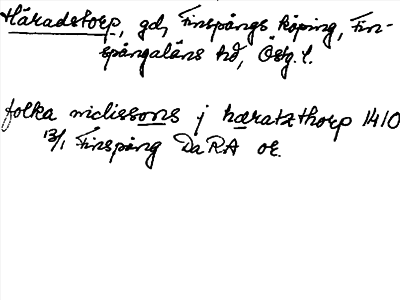 Häradstorp, gd, Finspångs köping, Fin-
spångaläns hd, Östg. l.
folka niclissons j hæratzthorp 1410
13/1 Finspång DaRA or.